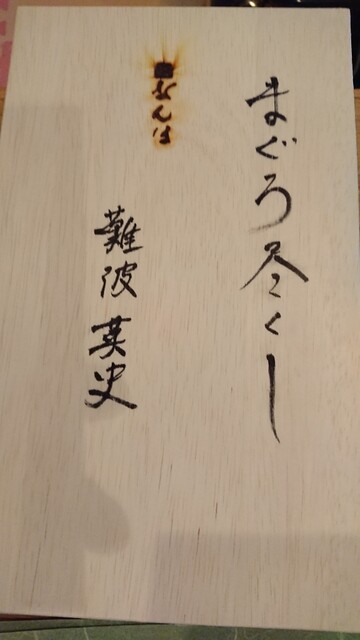 まぐろ尽くし
なんば
難波英史